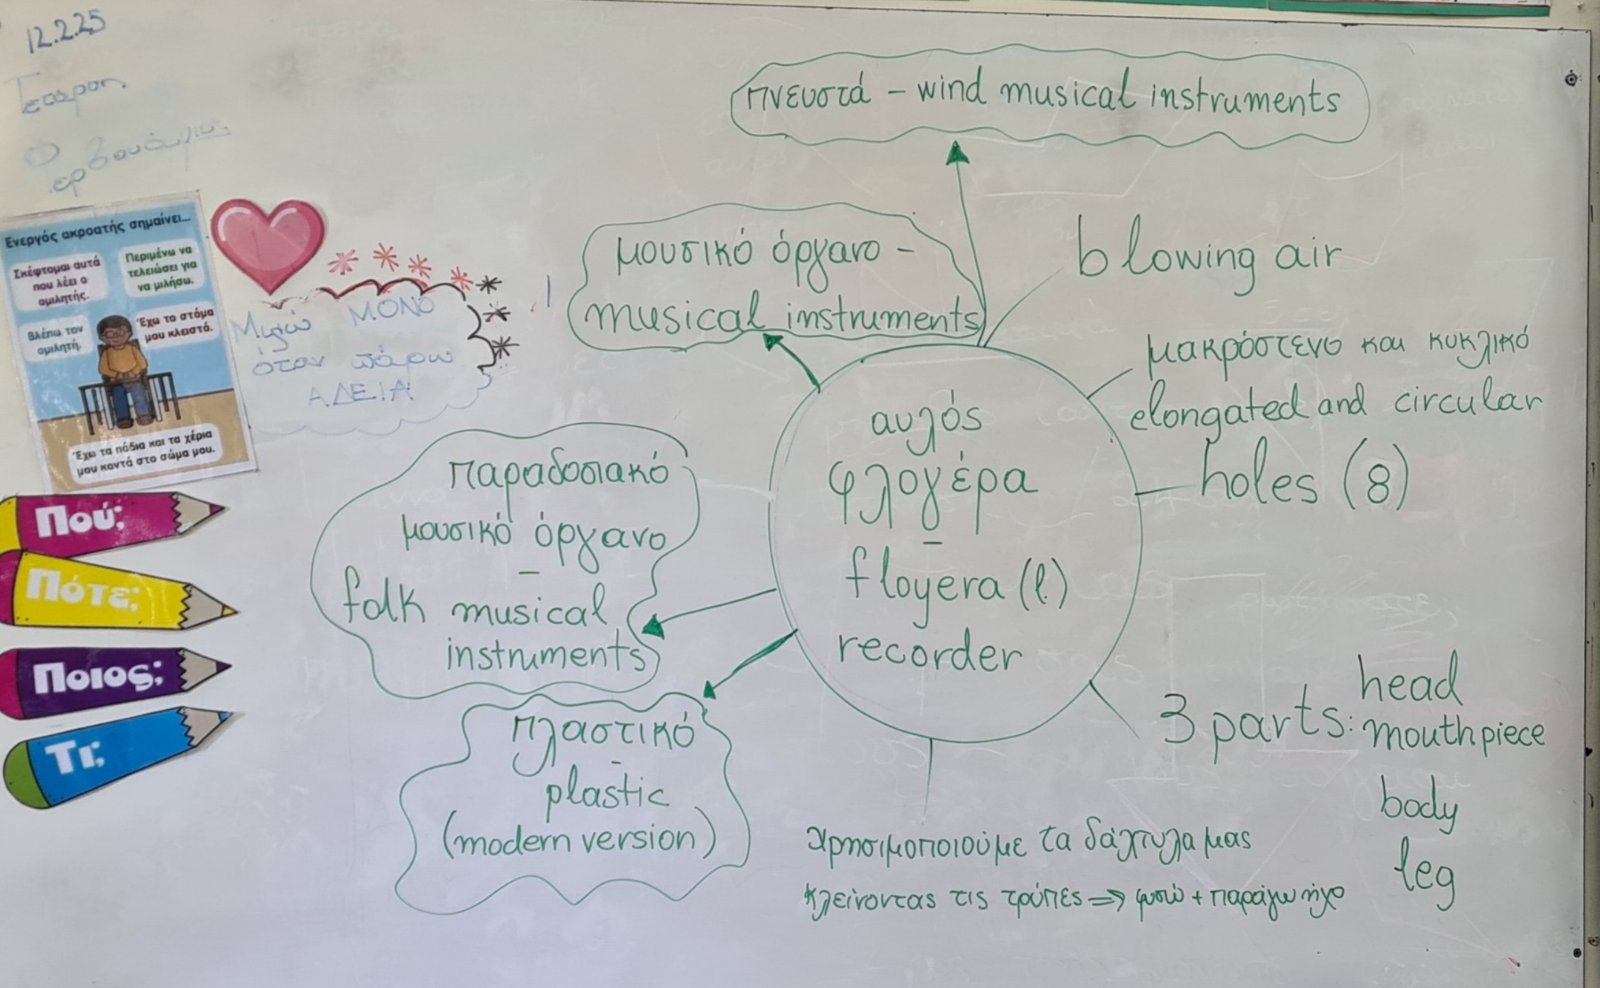 12.2.25
Τετάρτη
Φ
ερβουάριος
Ενεργός ακροατής σημαίνει...
Σκέφτομαι αυτά
που λέει ο
ομιλητής.
Περιμένω να
τελειώσει για
να μιλήσω.
Βλέπω τον
ομιλητή.
Έχω το στόμα
μου κλειστό.
Έχω τα πόδια και τα χέρια
μου κοντά στο σώμα μου.
Μιλώ ΜΟΝΟ
όταν πάρω
ΑΔΕΙΑ
Πού;
Πότε;
Ποιος;
Τι;
πνευστά - wind musical instruments
μουσικό όργανο -
musical instruments
blowing air
μακρόστενο και κυκλικό
elongated and circular
holes (8)
αυλός
φλογέρα
-
floyera (l)
recorder
παραδοσιακό
μουσικό όργανο
-
folk musical
instruments
πλαστικό
-
plastic
(modern version)
3 parts: head
mouthpiece
body
leg
χρησιμοποιούμε τα δάχτυλα μας
κλείνοντας τις τρύπες ⇒ φυσώ + παράγω ήχο